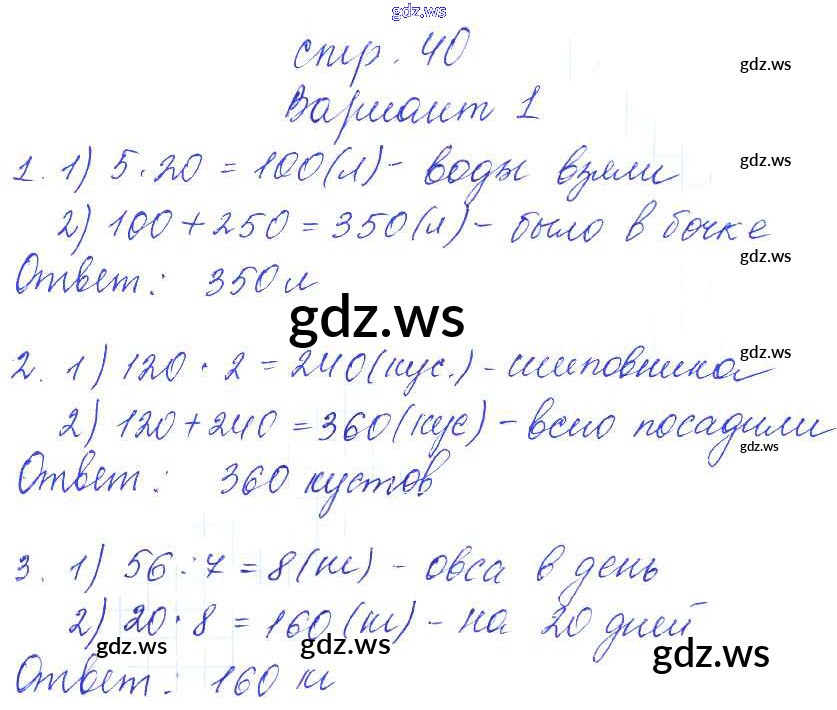 gdz.ws
стр. 40
gdz.ws
Вариант 1
1. 1) 5·20 = 100(л) - воды взяли
gdz.ws
2) 100 + 250 = 350(л) - было в бочке
gdz.ws
Ответ: 350 л
gdz.ws
2. 1) 120 · 2 = 240(кус.) - шиповника
gdz.ws
2) 120 + 240 = 360(кус) - всего посадили
gdz.ws
Ответ: 360 кустов
3. 1) 56 : 7 = 8(кг) - овса в день
2) 20 · 8 = 160(кг) - на 20 дней
gdz.ws gdz.ws gdz.ws
Ответ: 160 кг